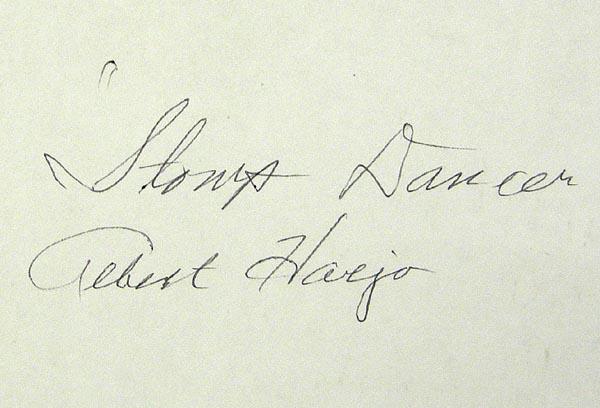 "Stomp Dancer
Albert Harjo